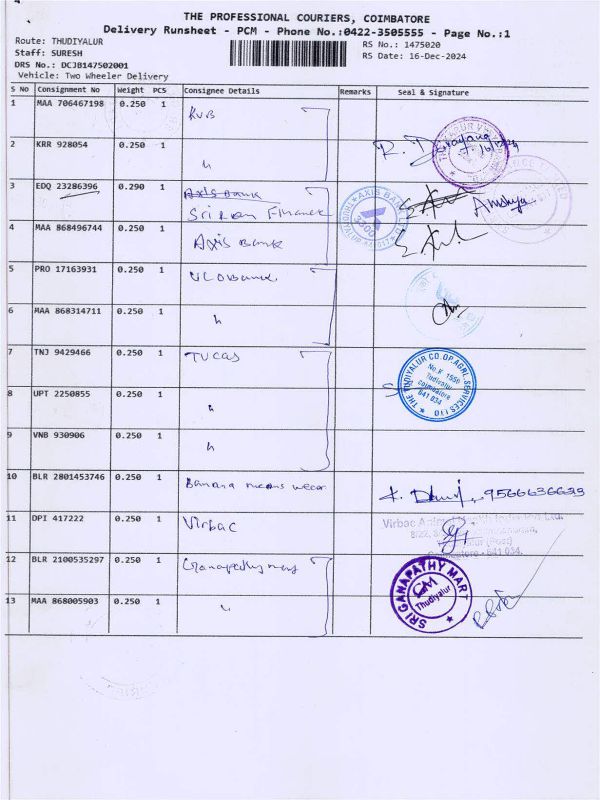 THE PROFESSIONAL COURIERS, COIMBATORE
Delivery Runsheet - PCM - Phone No.:0422-3505555 - Page No.:1
Route: THUDIYALUR
RS No.: 1475020
Staff: SURESH
RS Date: 16-Dec-2024
DRS No.: DCJB147502001
Vehicle: Two Wheeler Delivery
S No Consignment No Weight PCS Consignee Details Remarks Seal & Signature
1 MAA 706467198 0.250 1 KVB
2 KRR 928054 0.250 1 "
3 EDQ 23286396 0.290 1 Axis Bank
Finance
AXIS BANK
4 MAA 868496744 0.250 1 Axis Bank
5 PRO 17163931 0.250 1 UCO Bank
6 MAA 868314711 0.250 1 "
7 TNJ 9429466 0.250 1 TUCAS
THE TUDIYALUR CO.OP.AGRL. SERVICES LTD
No.K 1550
Tudiyalur
Coimbatore
641 034
8 UPT 2250855 0.250 1 "
9 VNB 930906 0.250 1 "
10 BLR 2801453746 0.250 1 Banana mens wear
11 DPI 417222 0.250 1 Virbac
Virbac Animal Health
Coimbatore - 641 034.
12 BLR 2100535297 0.250 1
SRI GANAPATHY MART
GM
Thudiyalur
13 MAA 868005903 0.250 1 "